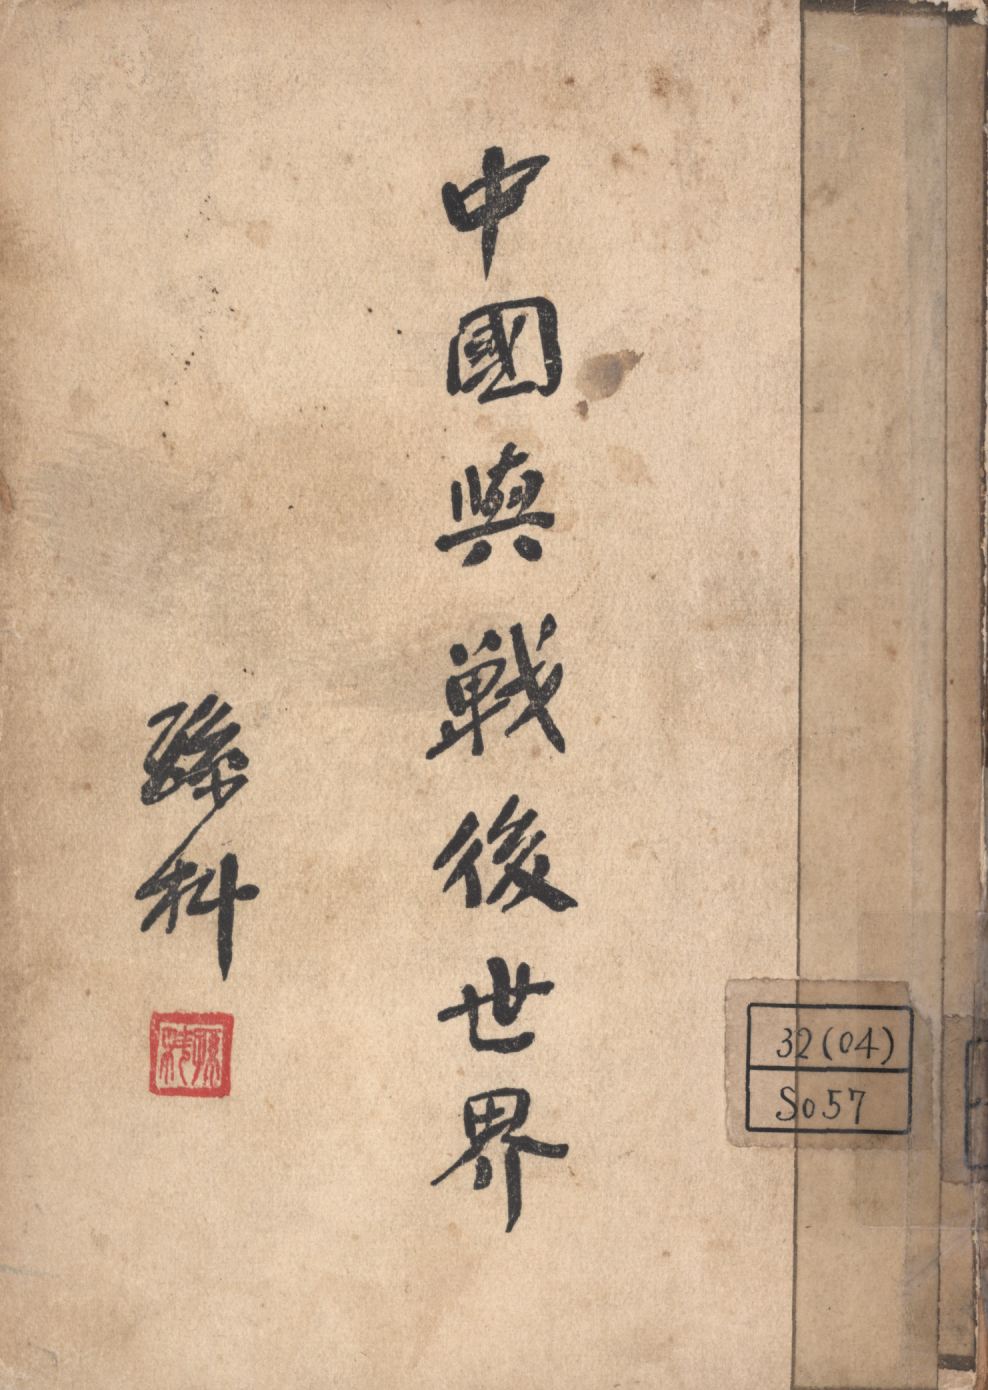 中國與戰後世界
孫科
32(04)
So57